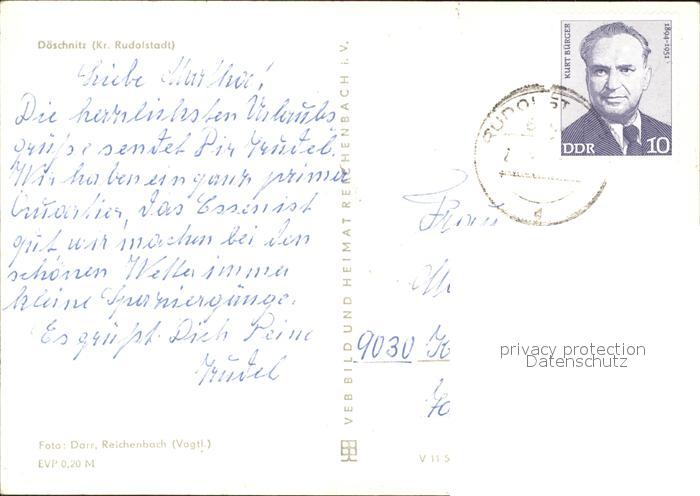 Döschnitz (Kr. Rudolstadt)
Liebe Martha!
Die herrlichsten Urlaubs
grüße sendet Dir Trudel.
Wir haben ein ganz prima
Quartier, das Essen ist
gut wir machen bei den
schönen Wetter immer
kleine Spaziergänge.
Es grüßt Dich Deine
Trudel
Foto: Darr, Reichenbach (Vogtl.)
EVP 0,20 M
VEB BILD UND HEIMAT REICHENBACH i. V.
V 11 5
KURT BÜRGER
1894-1951
DDR 10
RUDOLST
Frau
9030 K
privacy protection
Datenschutz